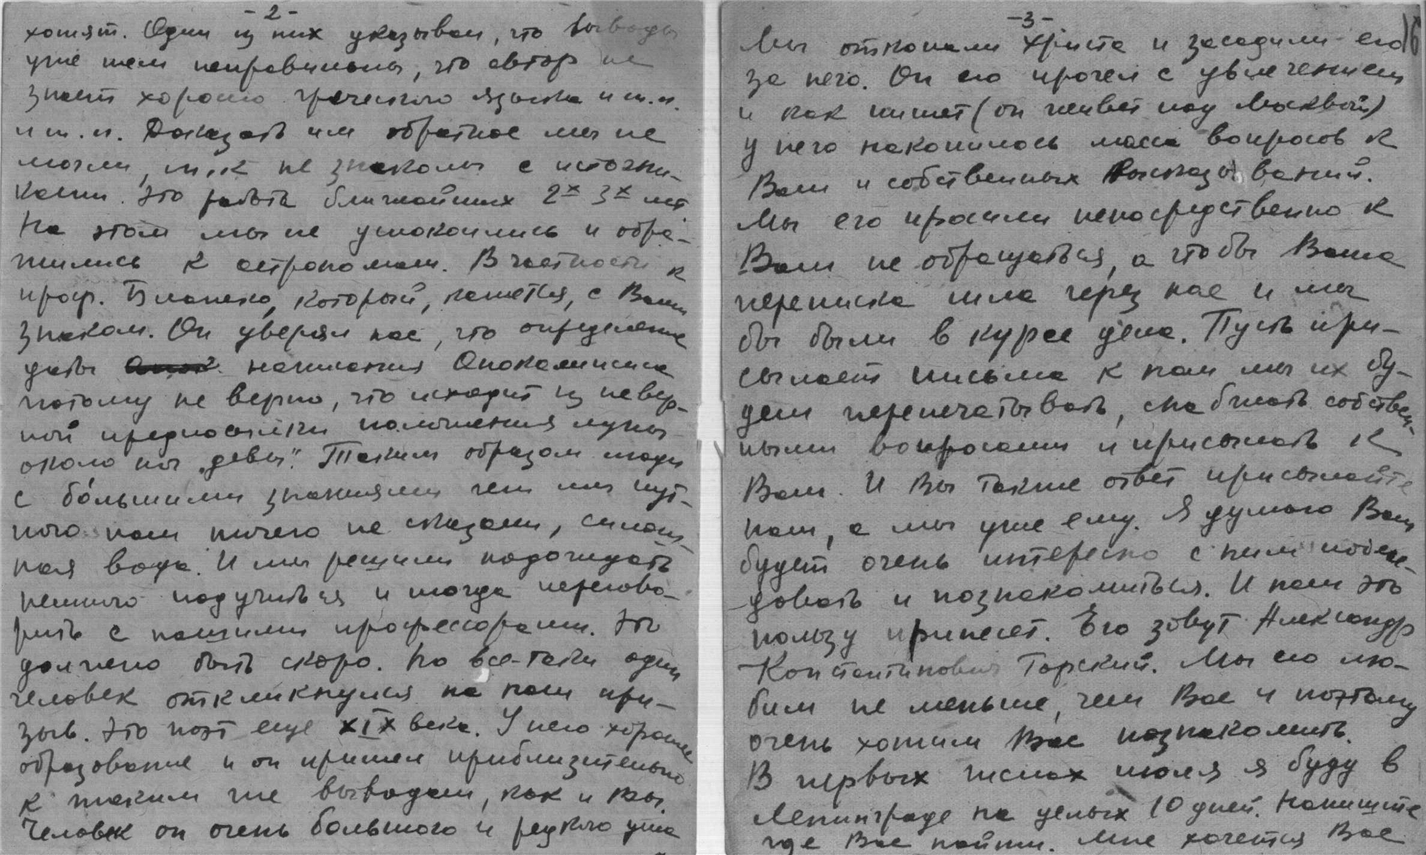 -2-
хотят. Один из них указывал, что выводы
уже тем неправильны, что автор не
знает хорошо греческого языка и т.п.
и т.п. Доказать им обратное мы не
могли, т.к не знакомы с источни-
ками. Это работа ближайших 2х 3х лет.
На этом мы не успокоились и обра-
тились к астрономам. В частности к
проф. Бланско, который, кажется, с Вами
знаком. Он уверял нас, что определение
даты написания Апокалипсиса
потому не верно, что исходит из невер-
ной предпосылки положения луны
около ног "девы". Таким образом люди
с бо́льшими знаниями чем мы пут-
ного нам ничего не сказали, сплош-
ная вода. И мы решили подождать
немного подучиться и тогда перегово-
рить с нашими профессорами. Это
должно быть скоро. Но все-таки один
человек откликнулся на наш при-
зыв. Это поэт еще XIX века. У него хорошее
образование и он пришел приблизительно
к таким же выводам, как и Вы.
Человек он очень большого и редкого ума
-3-
16
Мы откопали Христа и засадили его
за него. Он его прочел с увлечением
и как пишет (он живет под Москвой)
у него накопилось масса вопросов к
Вам и собственных высказываний.
Мы его просили непосредственно к
Вам не обращаться, а чтобы Ваша
переписка шла через нас и мы
бы были в курсе дела. Пусть при-
сылает письма к нам мы их бу-
дем перепечатывать, снабжать собствен-
ными вопросами и присылать к
Вам. И Вы также ответ присылайте
нам, а мы уже ему. Я думаю Вам
будет очень интересно с ним побесе-
довать и познакомиться. И нам это
пользу принесет. Его зовут Александр
Константинович Горский. Мы его лю-
бим не меньше, чем Вас и поэтому
очень хотим Вас познакомить.
В первых числах июля я буду в
Ленинграде на целых 10 дней. Напишите
где Вас найти. Мне хочется Вас